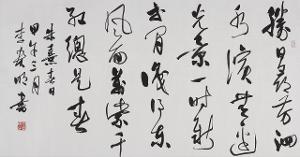 勝日尋芳泗
水濱無邊
光景一時新
等閒識得東
風面萬紫千
紅總是春
朱熹春日
甲午三月
李明書